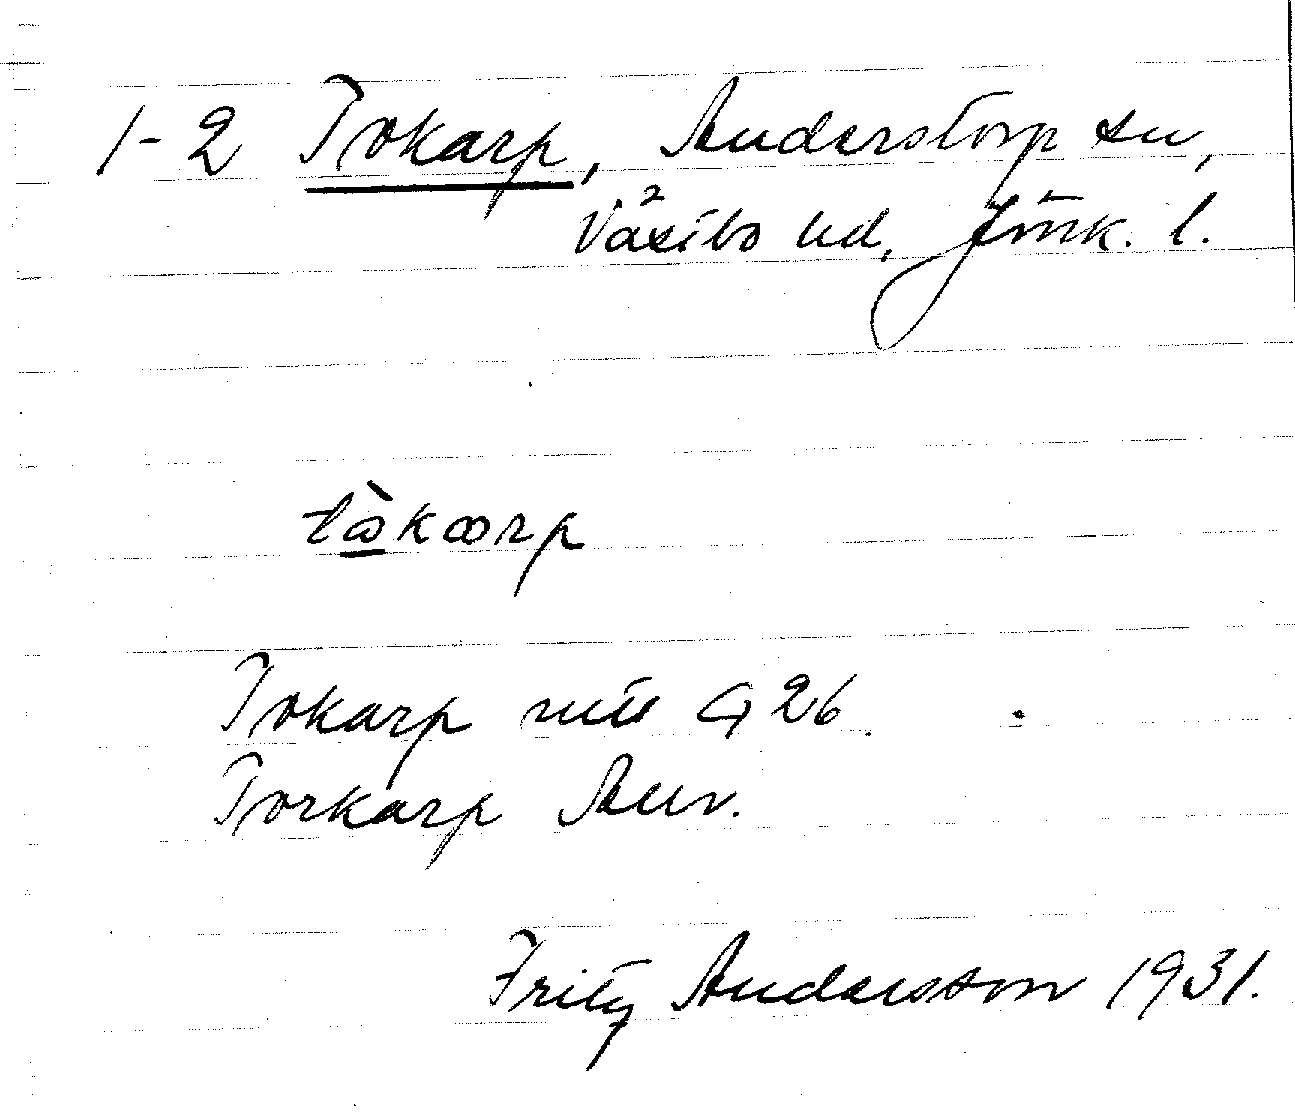 1-2 Tokarp, Anderstorp sn,
Västbo hd, Jönk. l.
tὼkarp
Tokarp mtl G 26.
Torkarp Anv.
Fritz Andersson 1931.